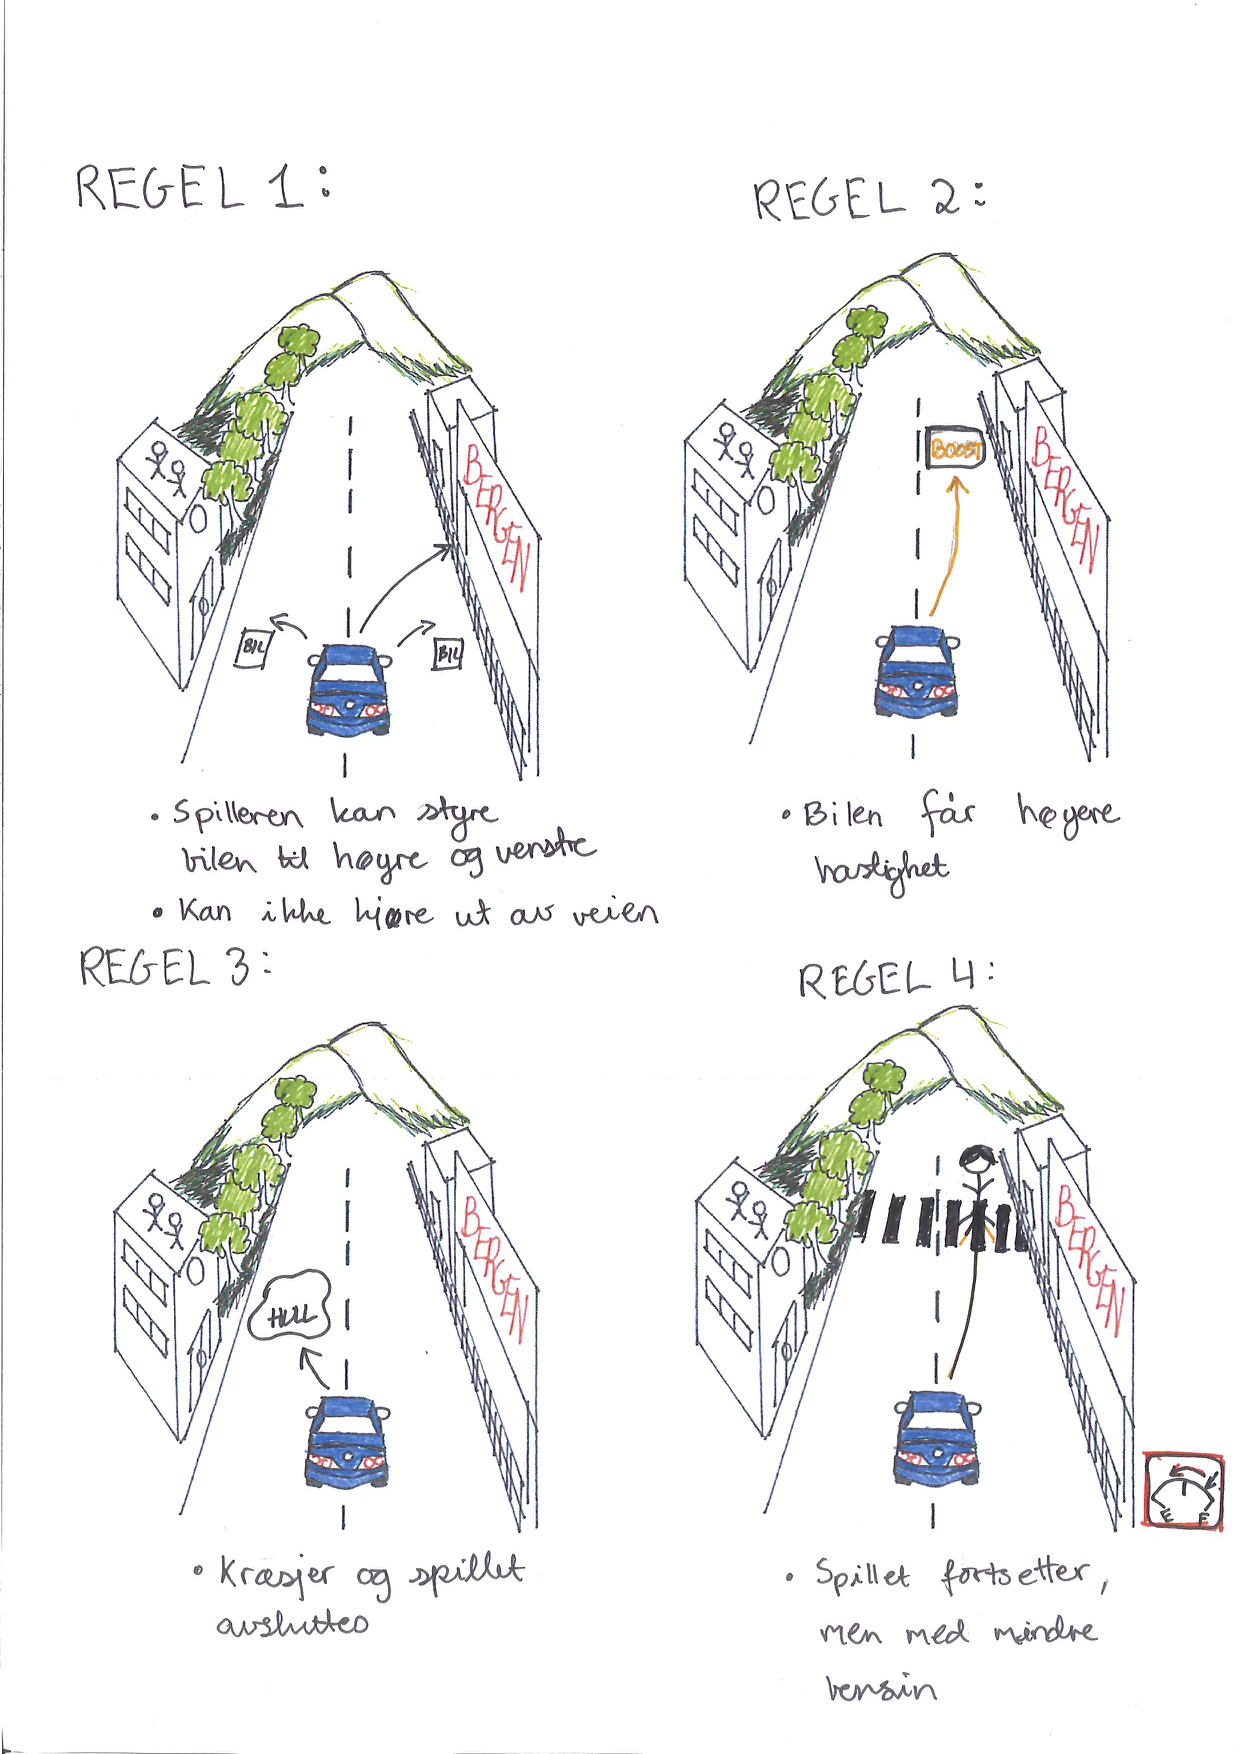 REGEL 1:
BERGEN
BIL
BIL
• Spilleren kan styre
bilen til høyre og venstre
• Kan ikke kjøre ut av veien
REGEL 2:
BOOST
BERGEN
• Bilen får høyere
hastighet
REGEL 3:
BERGEN
HULL
• Kræsjer og spillet
avsluttes
REGEL 4:
BERGEN
E F
• Spillet fortsetter,
men med mindre
bensin